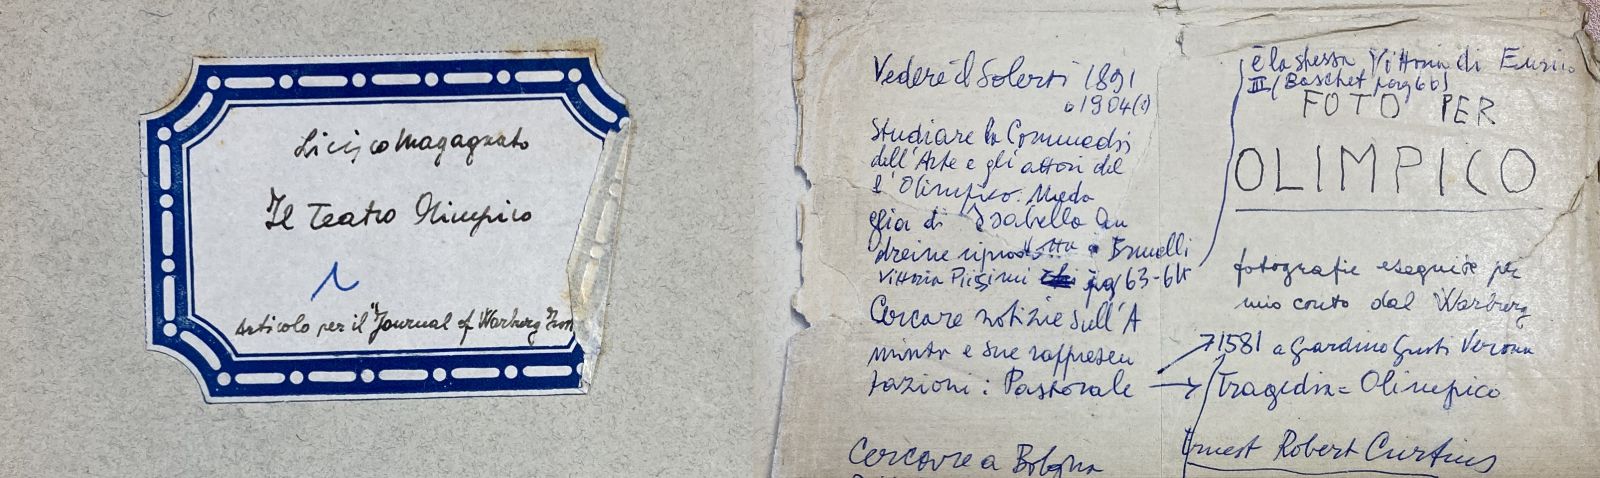 Licisco Magagnato
Il Teatro Olimpico
1
Articolo per il "Journal of Warburg Inst
Vedere il Solerti 1891
o 1904(?)
Studiare la Commedia
dell'Arte e gli attori del
l'Olimpico. Meda
glia di Isabella An
dreini a Brunelli
Vittoria Piissimi pag 63-64
Cercare notizie sull'A
minta e sue rappresen
tazioni: Pastorale
Cercare a Bologna
è la stessa Vittoria di Enrico
III (Baschet pag 66)
FOTO PER
OLIMPICO
fotografie eseguite per
mio conto dal Warburg
1581 a Giardino Giusti Verona
Tragedia = Olimpico
Ernest Robert Curtius